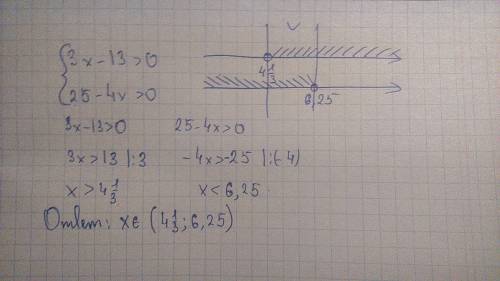 {3x-13>0
25-4x>0
4 1/3
6,25
3x-13>0 25-4x>0
3x>13 |:3 -4x>-25 |:(-4)
x>4 1/3 x<6,25
Ответ: x∈(4 1/3; 6,25)